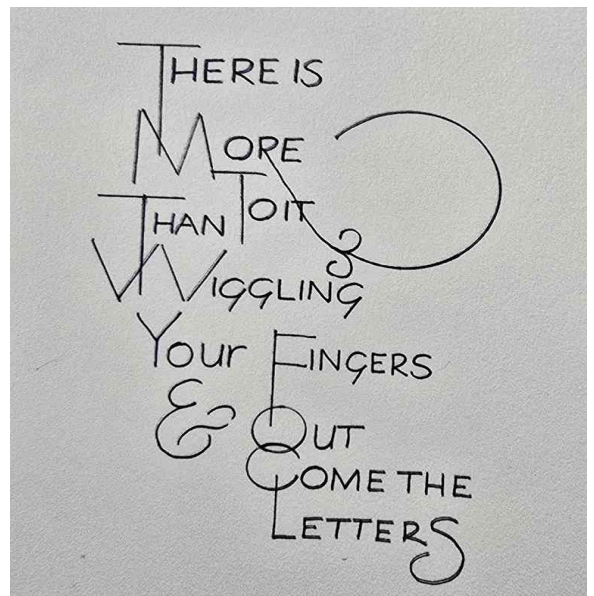 THERE IS
MORE
TO IT
THAN
WIGGLING
YOUR FINGERS
& OUT
COME THE
LETTERS